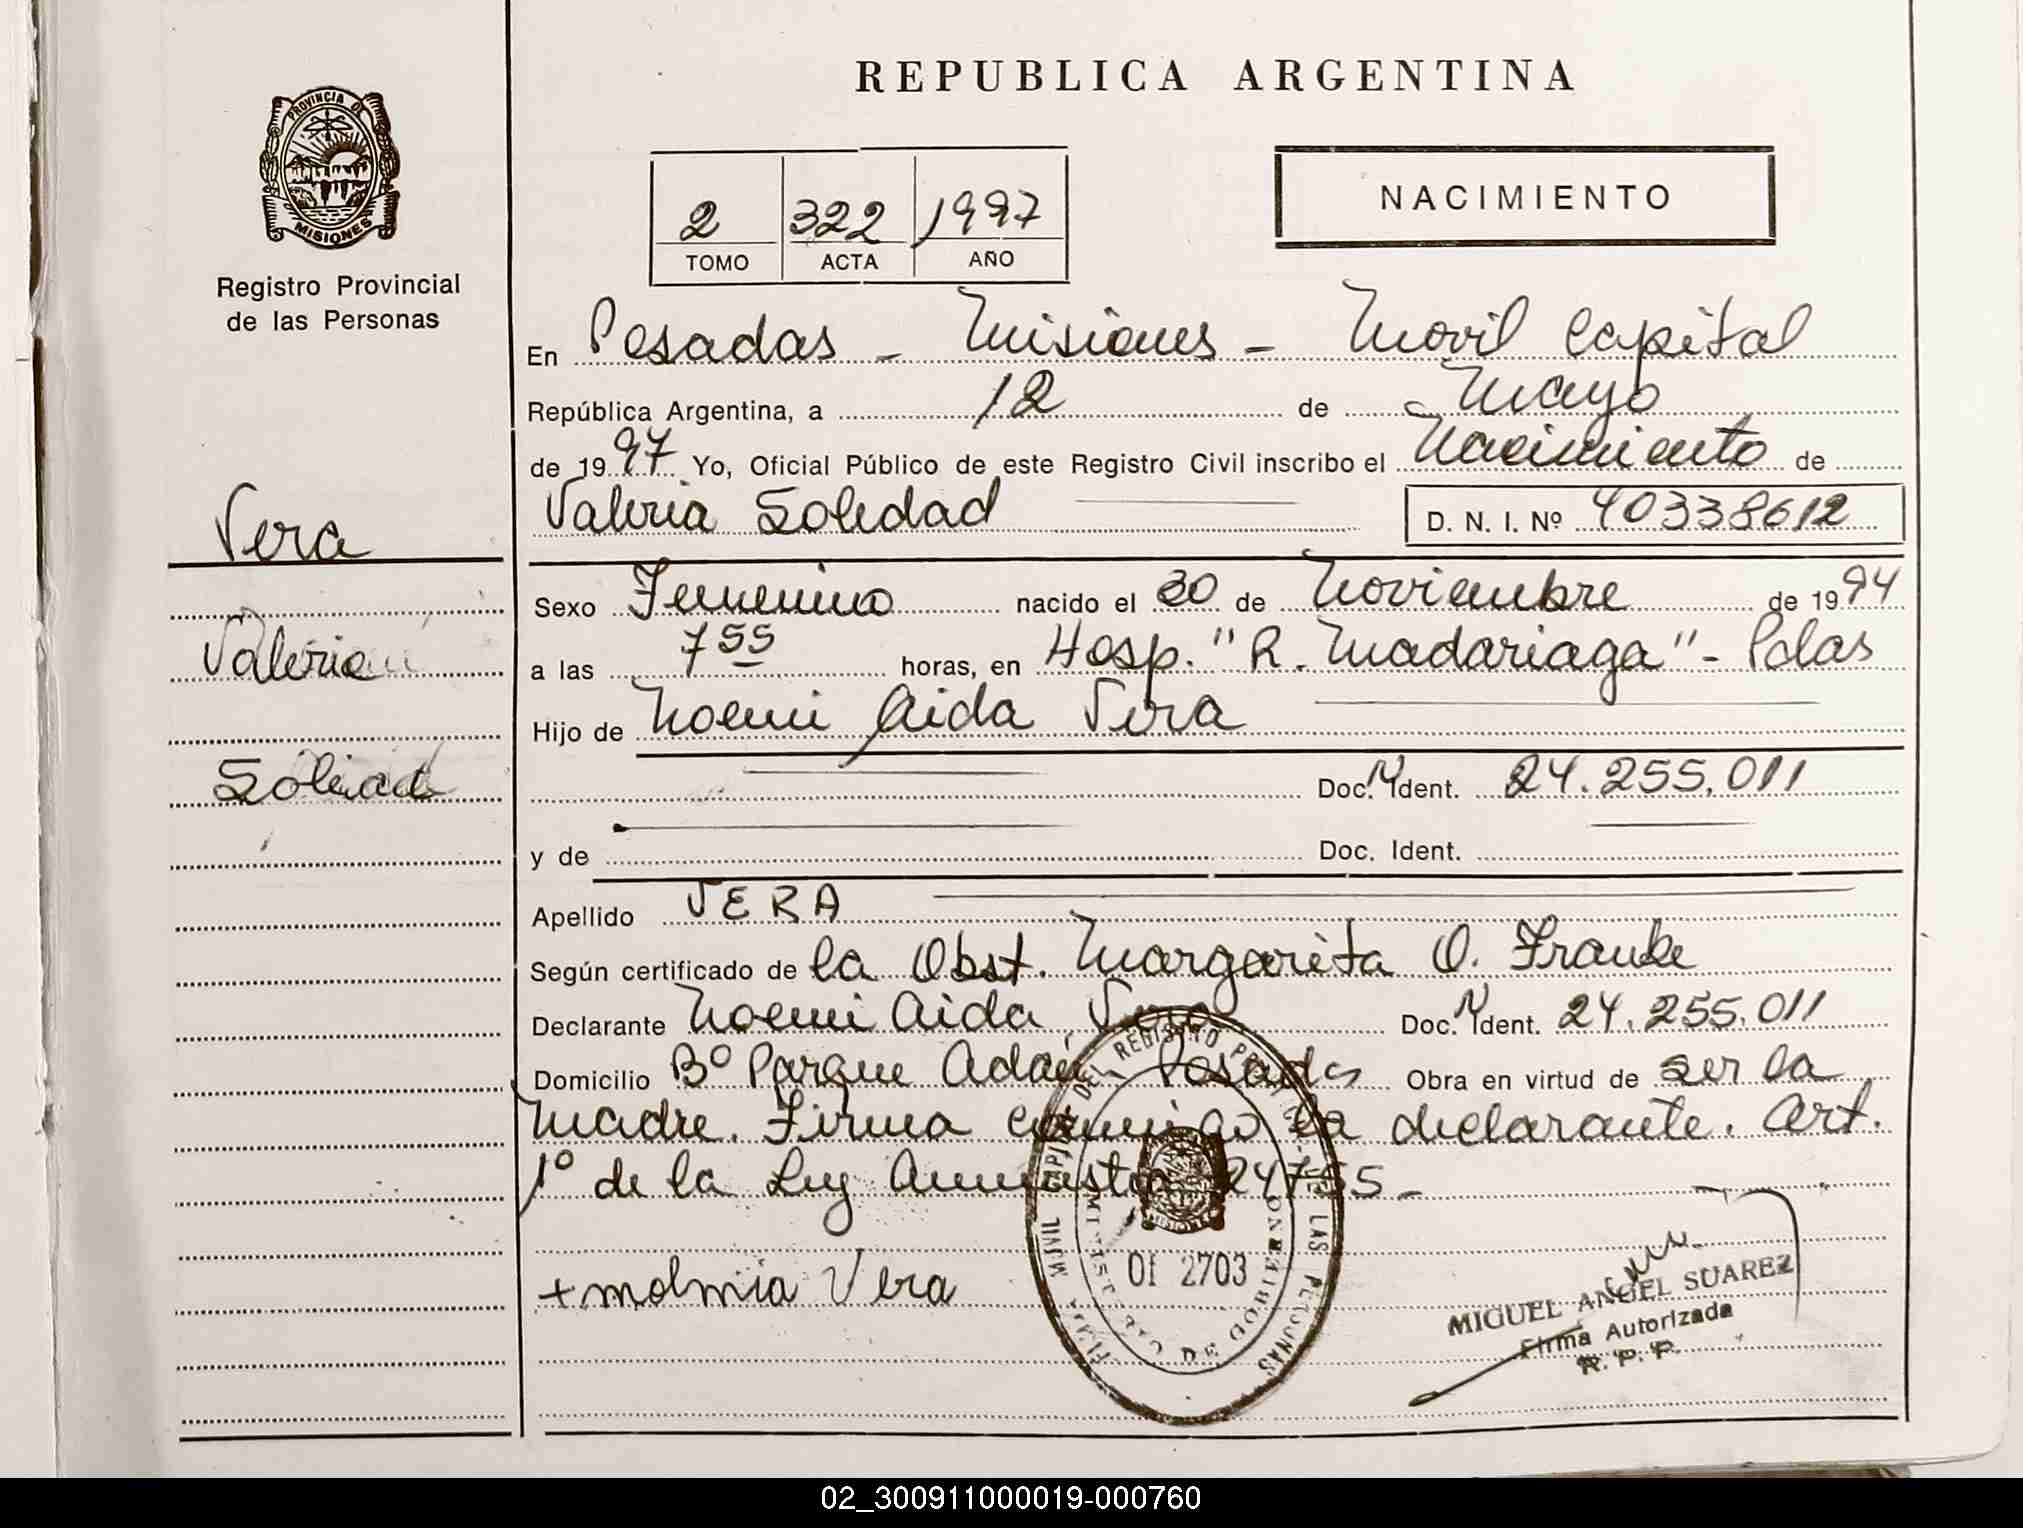 REPUBLICA ARGENTINA
PROVINCIA D
MISIONES
Registro Provincial
de las Personas
2 322 1997
TOMO ACTA AÑO
NACIMIENTO
En Posadas - Misiones - Movil Capital
República Argentina, a 12 de Mayo
de 1997 Yo, Oficial Público de este Registro Civil inscribo el Nacimiento de
Valeria Soledad D. N. I. Nº 40338612
Vera
Valeria
Soledad
Sexo Femenino nacido el 30 de Noviembre de 1994
a las 7 55 horas, en Hosp. "R. Madariaga" - Pdas
Hijo de Noemi Aida Vera
Doc. N Ident. 24.255.011
y de Doc. Ident.
Apellido VERA
Según certificado de la Obst. Margarita O. Franke
Declarante Noemi Aida Vera Doc. N Ident. 24.255.011
Domicilio Bº Parque Adam Posadas Obra en virtud de ser la
Madre. Firma conmigo la declarante. Art.
1º de la Ley Amnistia 24755 -
OF 2703
MIGUEL ANGEL SUAREZ
Firma Autorizada
R. P. P.
02_300911000019-000760